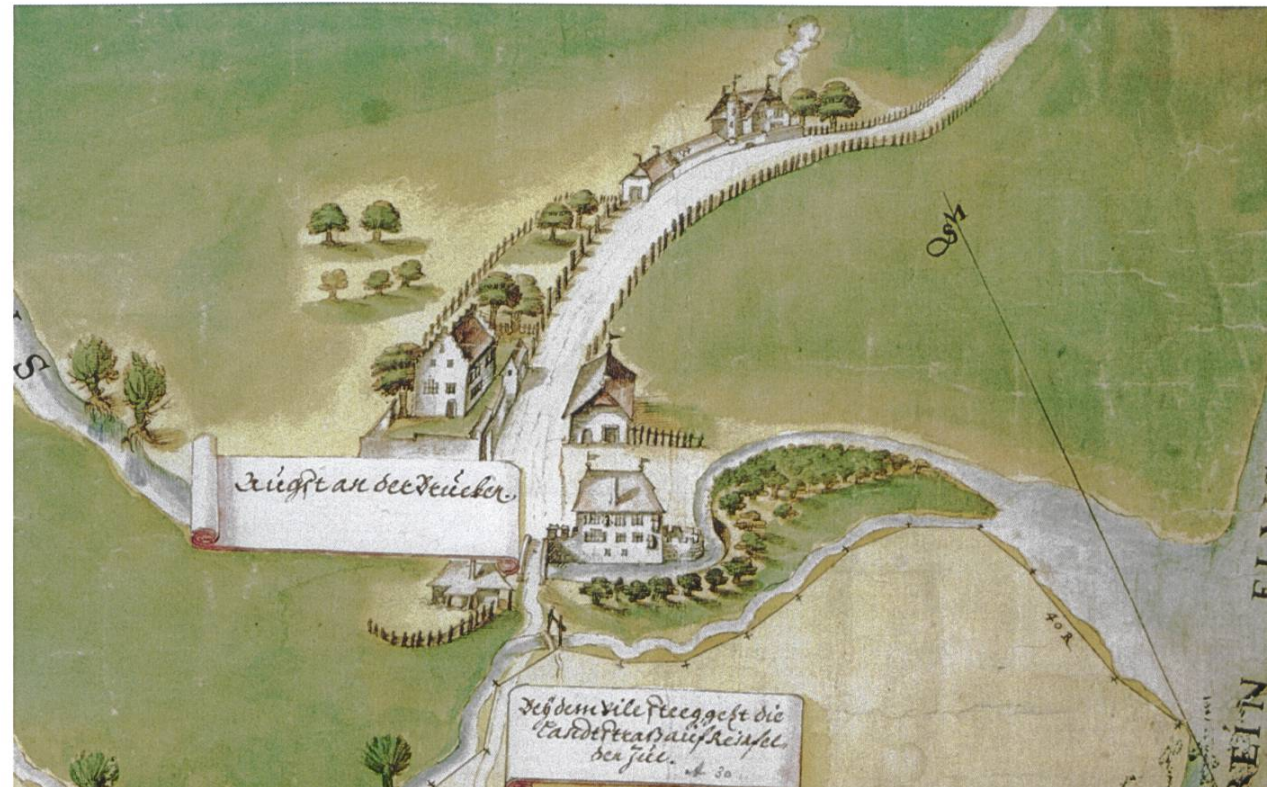 S
Augst an der Brücken.
40 R
Beÿ dem Vilesteeg geht die
Landtstraß auf Reinfel
den zue.
30
REIN